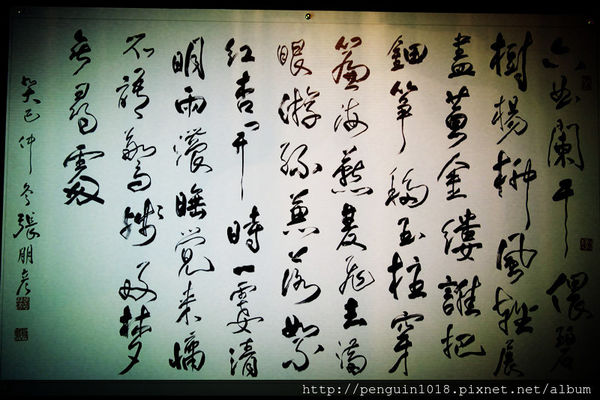 六曲闌干偎碧
樹楊柳風輕展
盡黃金縷誰把
鈿箏移玉柱穿
簾海燕雙飛去滿
眼游絲兼落絮
紅杏開時一霎清
明雨濃睡覺來慵
不語驚殘好夢
無尋處
癸巳仲冬張朋彥
http://penguin1018.pixnet.net/album